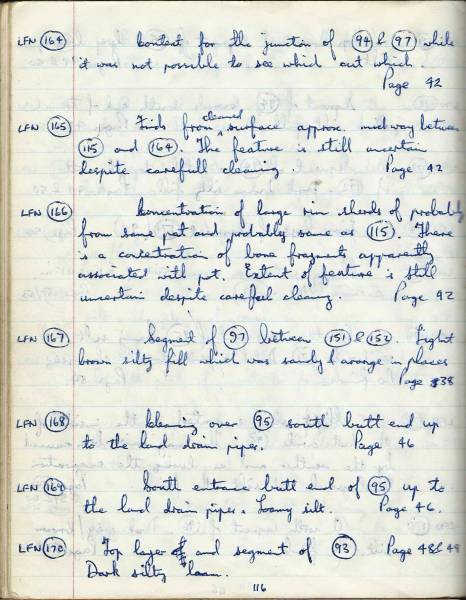 LFN (164) Context for the junction of (94) & (97) while
it was not possible to see which cut which.
Page 42
LFN (165) Finds from cleaned surface approx. midway between
(115) and (164). The feature is still uncertain
despite carefull cleaning. Page 42
LFN (166) Concentration of large rim sherds of probably
from same pot and probably same as (115). There
is a contentration of bone fragments apparently
associated with pot. Extent of feature is still
uncertain despite carefeel cleaning. Page 42
LFN (167) Segment of (97) between (151) & (152). Light
brown silty fill which was sandy & orange in places
Page 38
LFN (168) Cleaning over (95) south butt end up
to the land drain pipe. Page 46
LFN (169) South entrance butt end of (95) up to
the land drain pipe. Loamy silt. Page 46.
LFN (170) Top layer and segment of (93) Page 48 & 49
Dark silty loam.
116